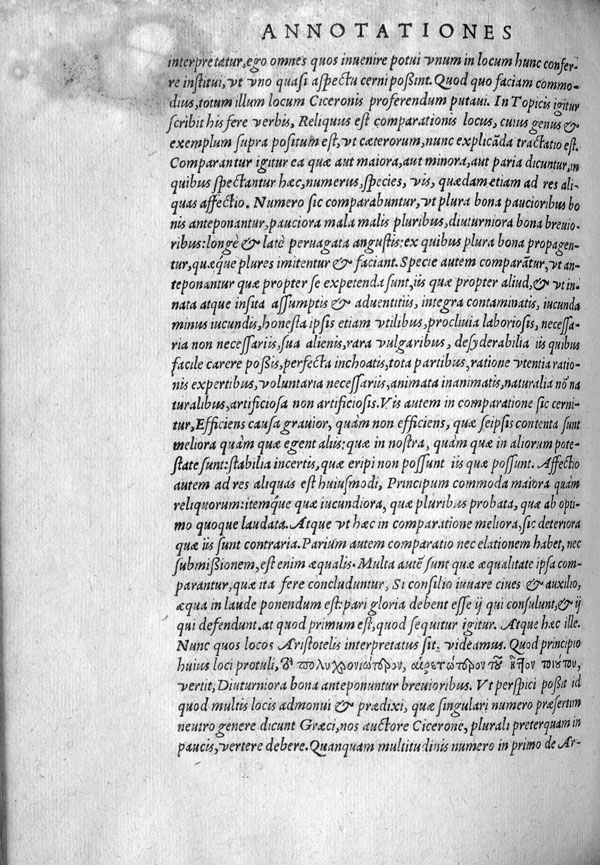 ANNOTATIONES
interpretatur, ego omnes quos inuenire potui vnum in locum hunc confer-
re institui, vt vno quasi aspectu cerni possint. Quod quo faciam commo-
dius, totum illum locum Ciceronis proferendum putaui. In Topicis igitur
scribit his fere verbis, Reliquus est comparationis locus, cuius genus &
exemplum supra positum est, vt cæterorum, nunc explicāda tractatio est.
Comparantur igitur ea quæ aut maiora, aut minora, aut paria dicuntur, in
quibus spectantur hæc, numerus, species, vis, quædam etiam ad res ali-
quas affectio. Numero sic comparabuntur, vt plura bona paucioribus bo
nis anteponantur, pauciora mala malis pluribus, diuturniora bona breuio-
ribus: longè & latè peruagata angustis: ex quibus plura bona propagen-
tur, quæq́ue plures imitentur & faciant. Specie autem comparātur, vt an-
teponantur quæ propter se expetenda sunt, iis quæ propter aliud, & vt in-
nata atque insita assumptis & aduentitiis, integra contaminatis, iucunda
minus iucundis, honesta ipsis etiam vtilibus, procliuia laboriosis, necessa-
ria non necessariis, sua alienis, rara vulgaribus, desyderabilia iis quibus
facile carere possis, perfecta inchoatis, tota partibus, ratione vtentia ratio-
nis expertibus, voluntaria necessariis, animata inanimatis, naturalia nō na
turalibus, artificiosa non artificiosis. Vis autem in comparatione sic cerni-
tur, Efficiens causa grauior, quàm non efficiens, quæ seipsis contenta sunt
meliora quàm quæ egent aliis: quæ in nostra, quàm quæ in aliorum pote-
state sunt: stabilia incertis, quæ eripi non possunt iis quæ possunt. Affectio
autem ad res aliquas est huiusmodi, Principum commoda maiora quàm
reliquorum: itemq́ue quæ iucundiora, quæ pluribus probata, quæ ab opti-
mo quoque laudata. Atque vt hæc in comparatione meliora, sic deteriora
quæ iis sunt contraria. Parium autem comparatio nec elationem habet, nec
submissionem, est enim æqualis. Multa autē sunt quæ æqualitate ipsa com-
parantur, quæ ita fere concluduntur, Si consilio iuuare ciues & auxilio,
æqua in laude ponendum est: pari gloria debent esse ij qui consulunt, & ij
qui defendunt. at quod primum est, quod sequitur igitur. Atque hæc ille.
Nunc quos locos Aristotelis interpretatus sit, videamus. Quod principio
huius loci protuli, ὅτι πολυχρονιώτερον, αἱρετώτερον τοῦ ἧττον τοιούτου,
vertit, Diuturniora bona anteponuntur breuioribus. Vt perspici possit id
quod multis locis admonui & prædixi, quæ singulari numero præsertim
neutro genere dicunt Græci, nos auctore Cicerone, plurali preterquam in
paucis, vertere debere. Quanquam multitudinis numero in primo de Ar-